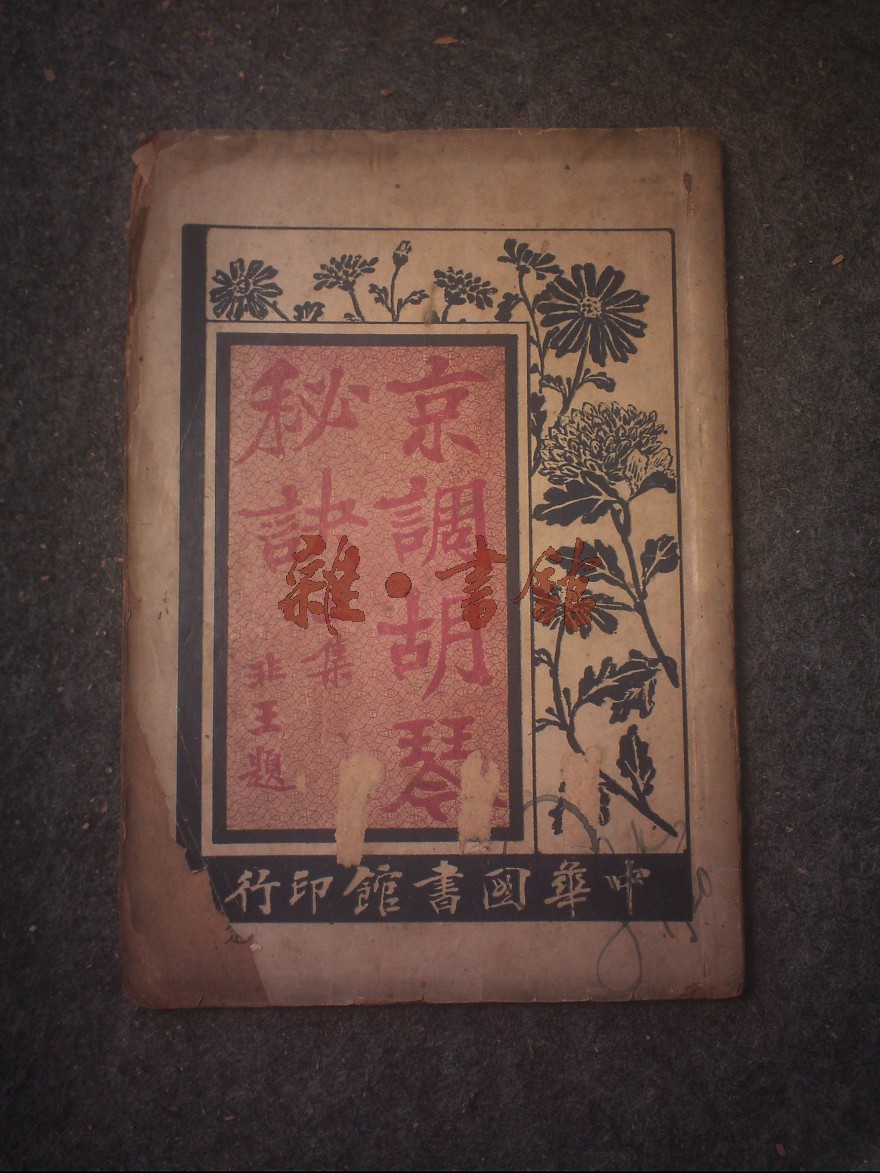 京調胡琴
秘訣
集
非王題
中華國書館印行
雜·書館